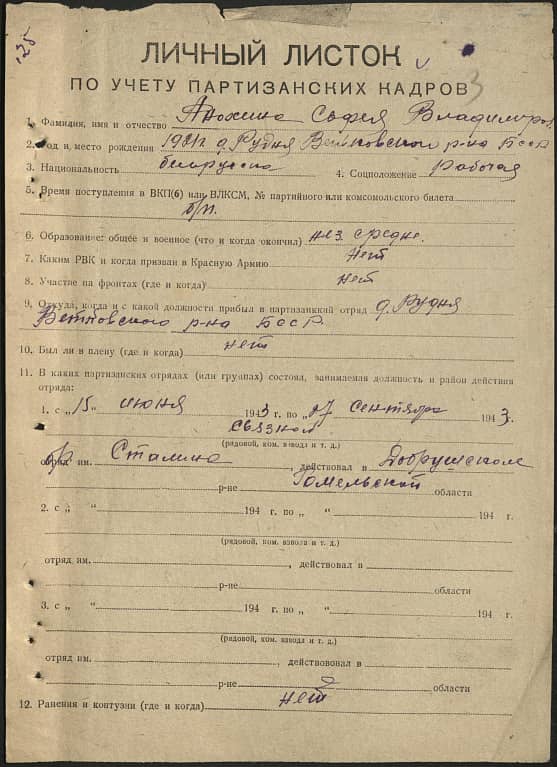 125
ЛИЧНЫЙ ЛИСТОК
ПО УЧЕТУ ПАРТИЗАНСКИХ КАДРОВ 3
1. Фамилия, имя и отчество Анохина София Владимиров
2. Год и место рождения 1921г. д. Рудня Ветковского р-на БССР
3. Национальность белоруска 4. Соцположение Рабочая
5. Время поступления в ВКП(б) или ВЛКСМ, № партийного или комсомольского билета
б/п.
6. Образование: общее и военное (что и когда окончил) нез. средне.
7. Каким РВК и когда призван в Красную Армию Нет
8. Участие на фронтах (где и когда) нет
9. Откуда, когда и с какой должности прибыл в партизанкий отряд д. Рудня
Ветковского р-на БССР
10. Был ли в плену (где и когда) нет
11. В каких партизанских отрядах (или группах) состоял, занимаемая должность и район действия
отряда:
1. с „15" июня 1943 г. по „27 сентября 1943.
связной
(рядовой, ком. взвода и т. д.)
отряд им. Сталина, действовал в Добрушском
р-не Гомельской области
2. с „ " 194 г. по „ " 194 г.
(рядовой, ком. взвода и т. д.)
отряд им. , действовал в
р-не области
3. с „ " 194 г. по „ " 194 г.
(рядовой, ком. взвода и т. д.)
отряд им. , действововал в
р-не области
12. Ранения и контузии (где и когда) нет